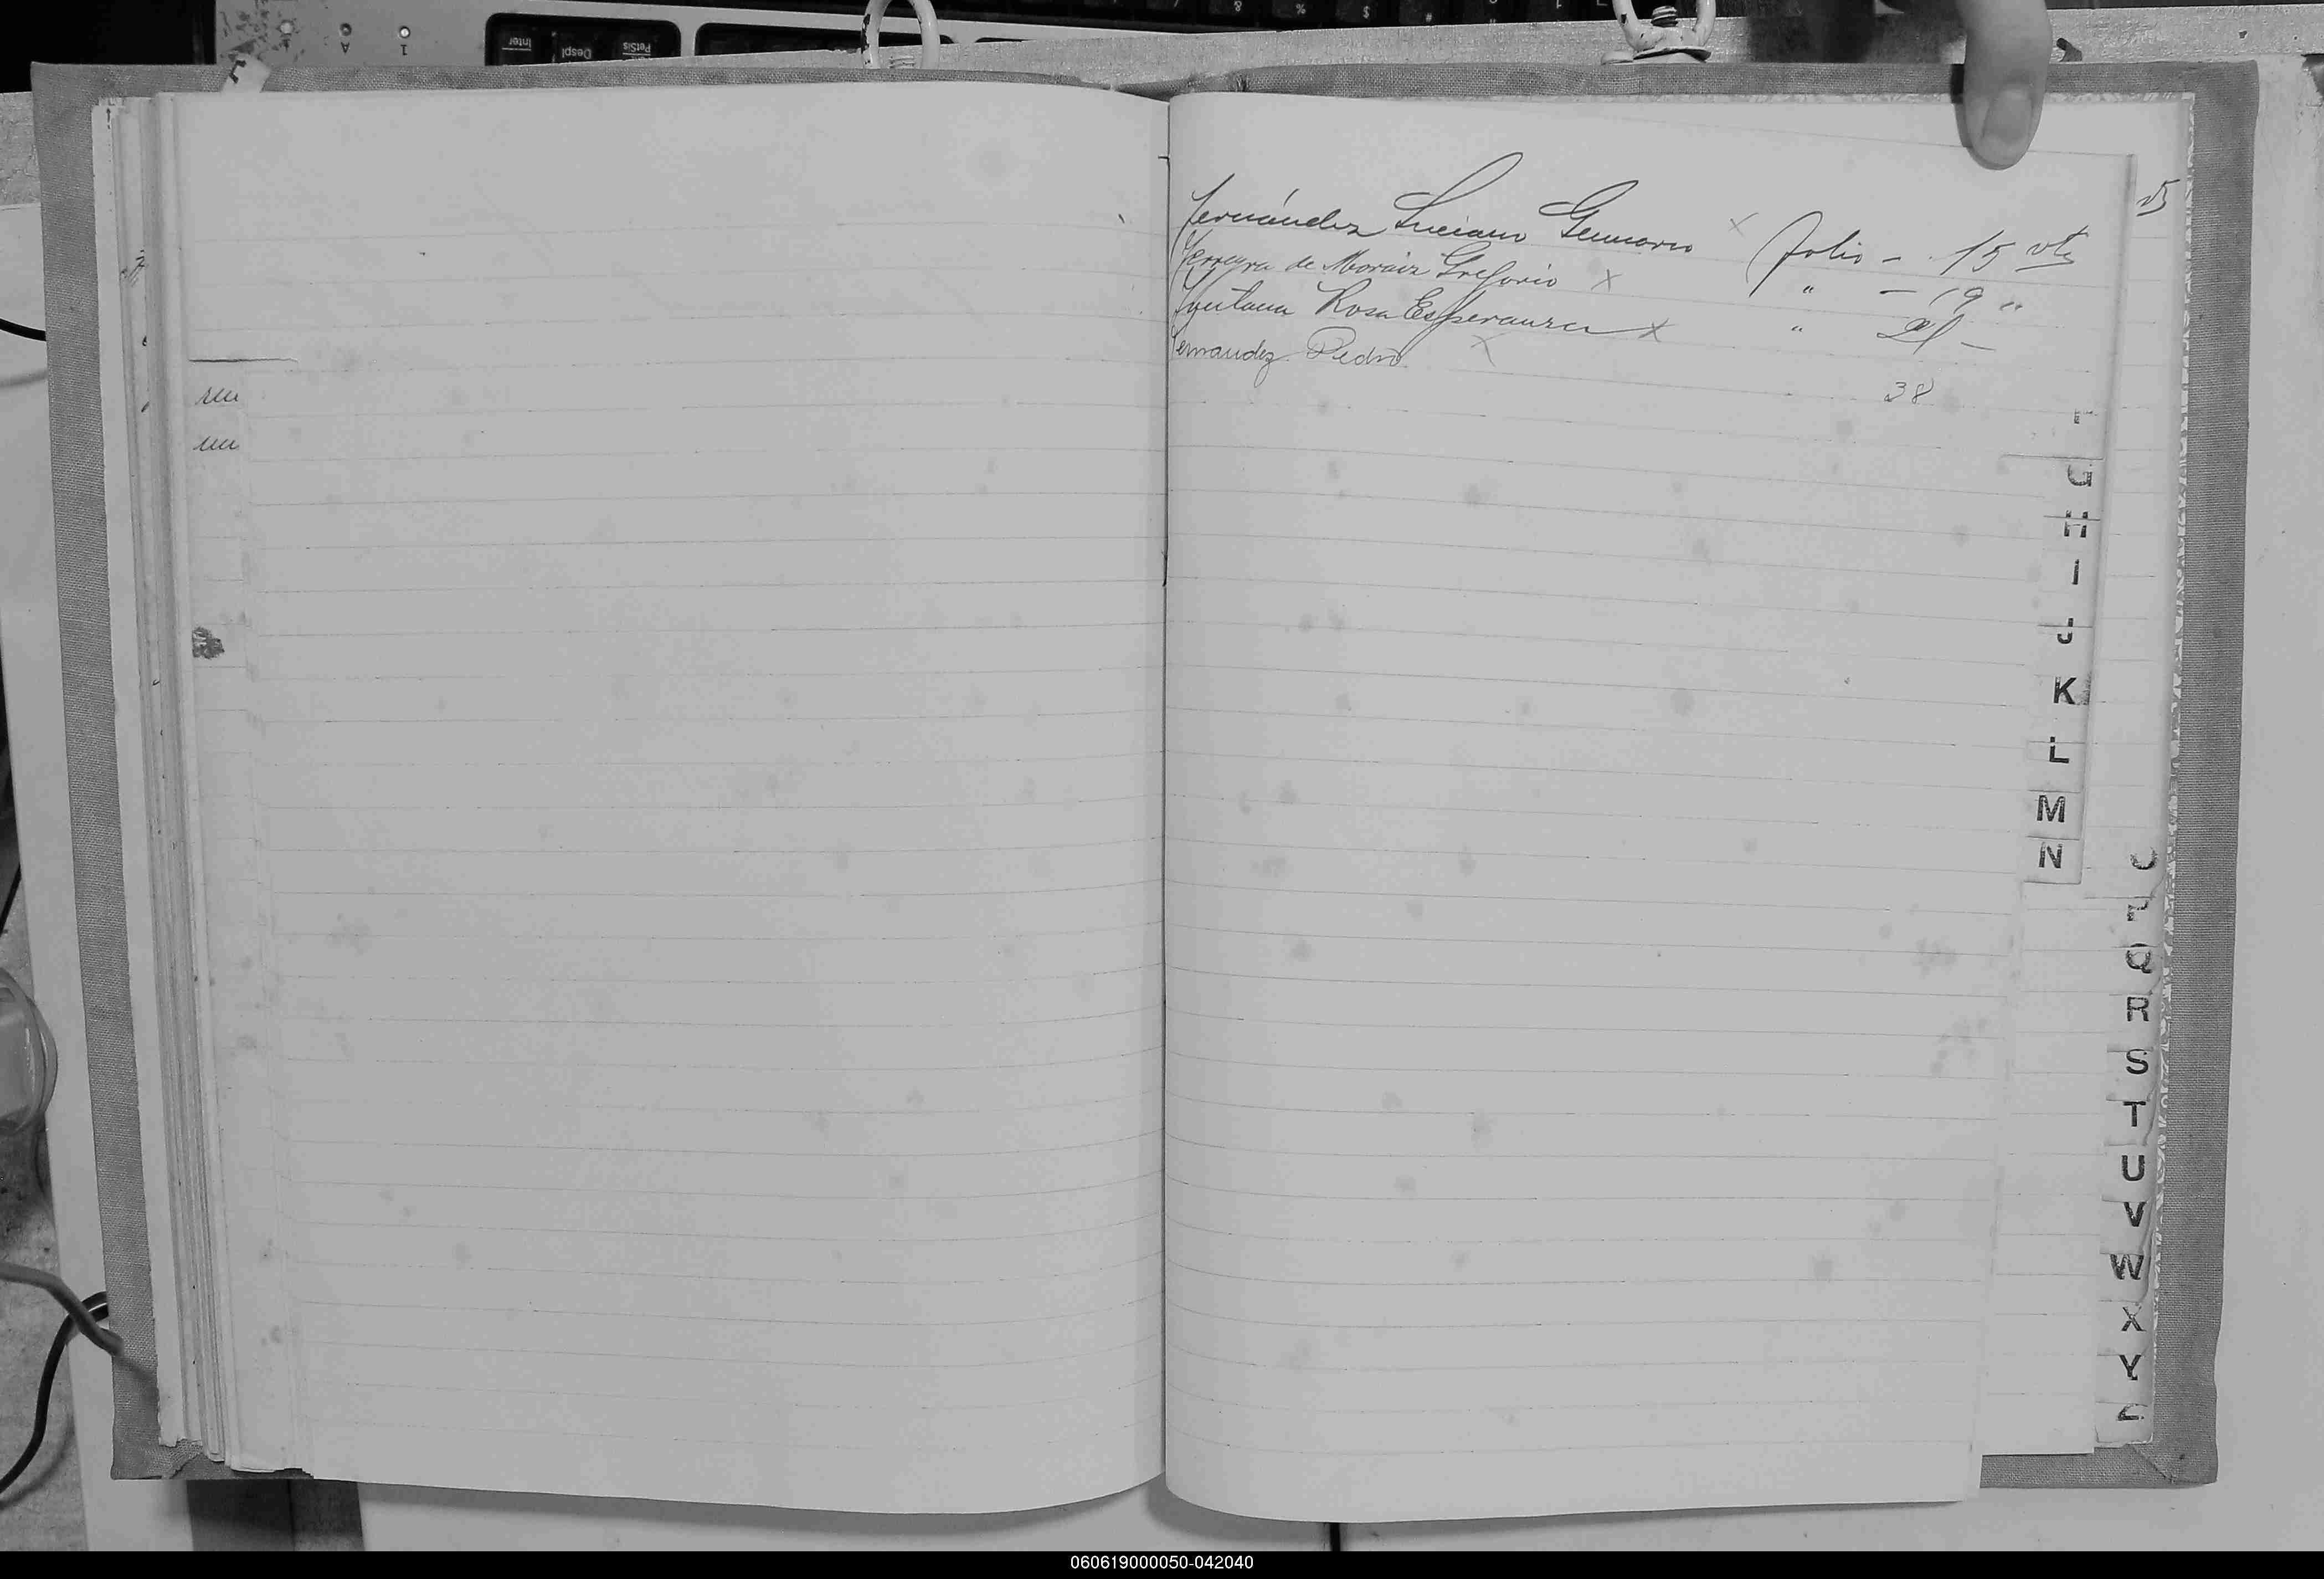 Fernández Luciano Genuario x folio - 15 vta
Ferreyra de Moraiz Gregorio x " - 19 "
Fontana Rosa Esperanza x " 21 -
Fernandez Pedro x
" 38
F
G
H
I
J
K
L
M
N
O
P
Q
R
S
T
U
V
W
X
Y
Z
060619000050-042040